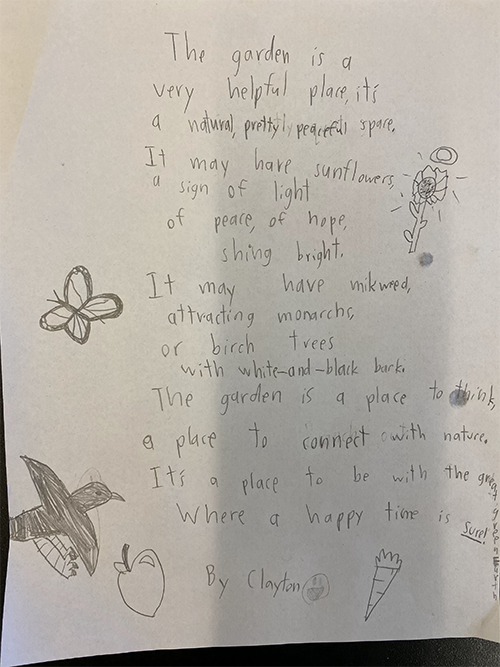 The garden is a
very helpful place, it's
a natural, prettly peaceful space.
It may have sunflowers,
a sign of light
of peace, of hope,
shing bright.
It may have mikweed,
attracting monarchs,
or birch trees
with white-and-black bark.
The garden is a place to think,
a place to connect with nature.
It's a place to be with the great green earth
Where a happy time is sure!
By Clayton